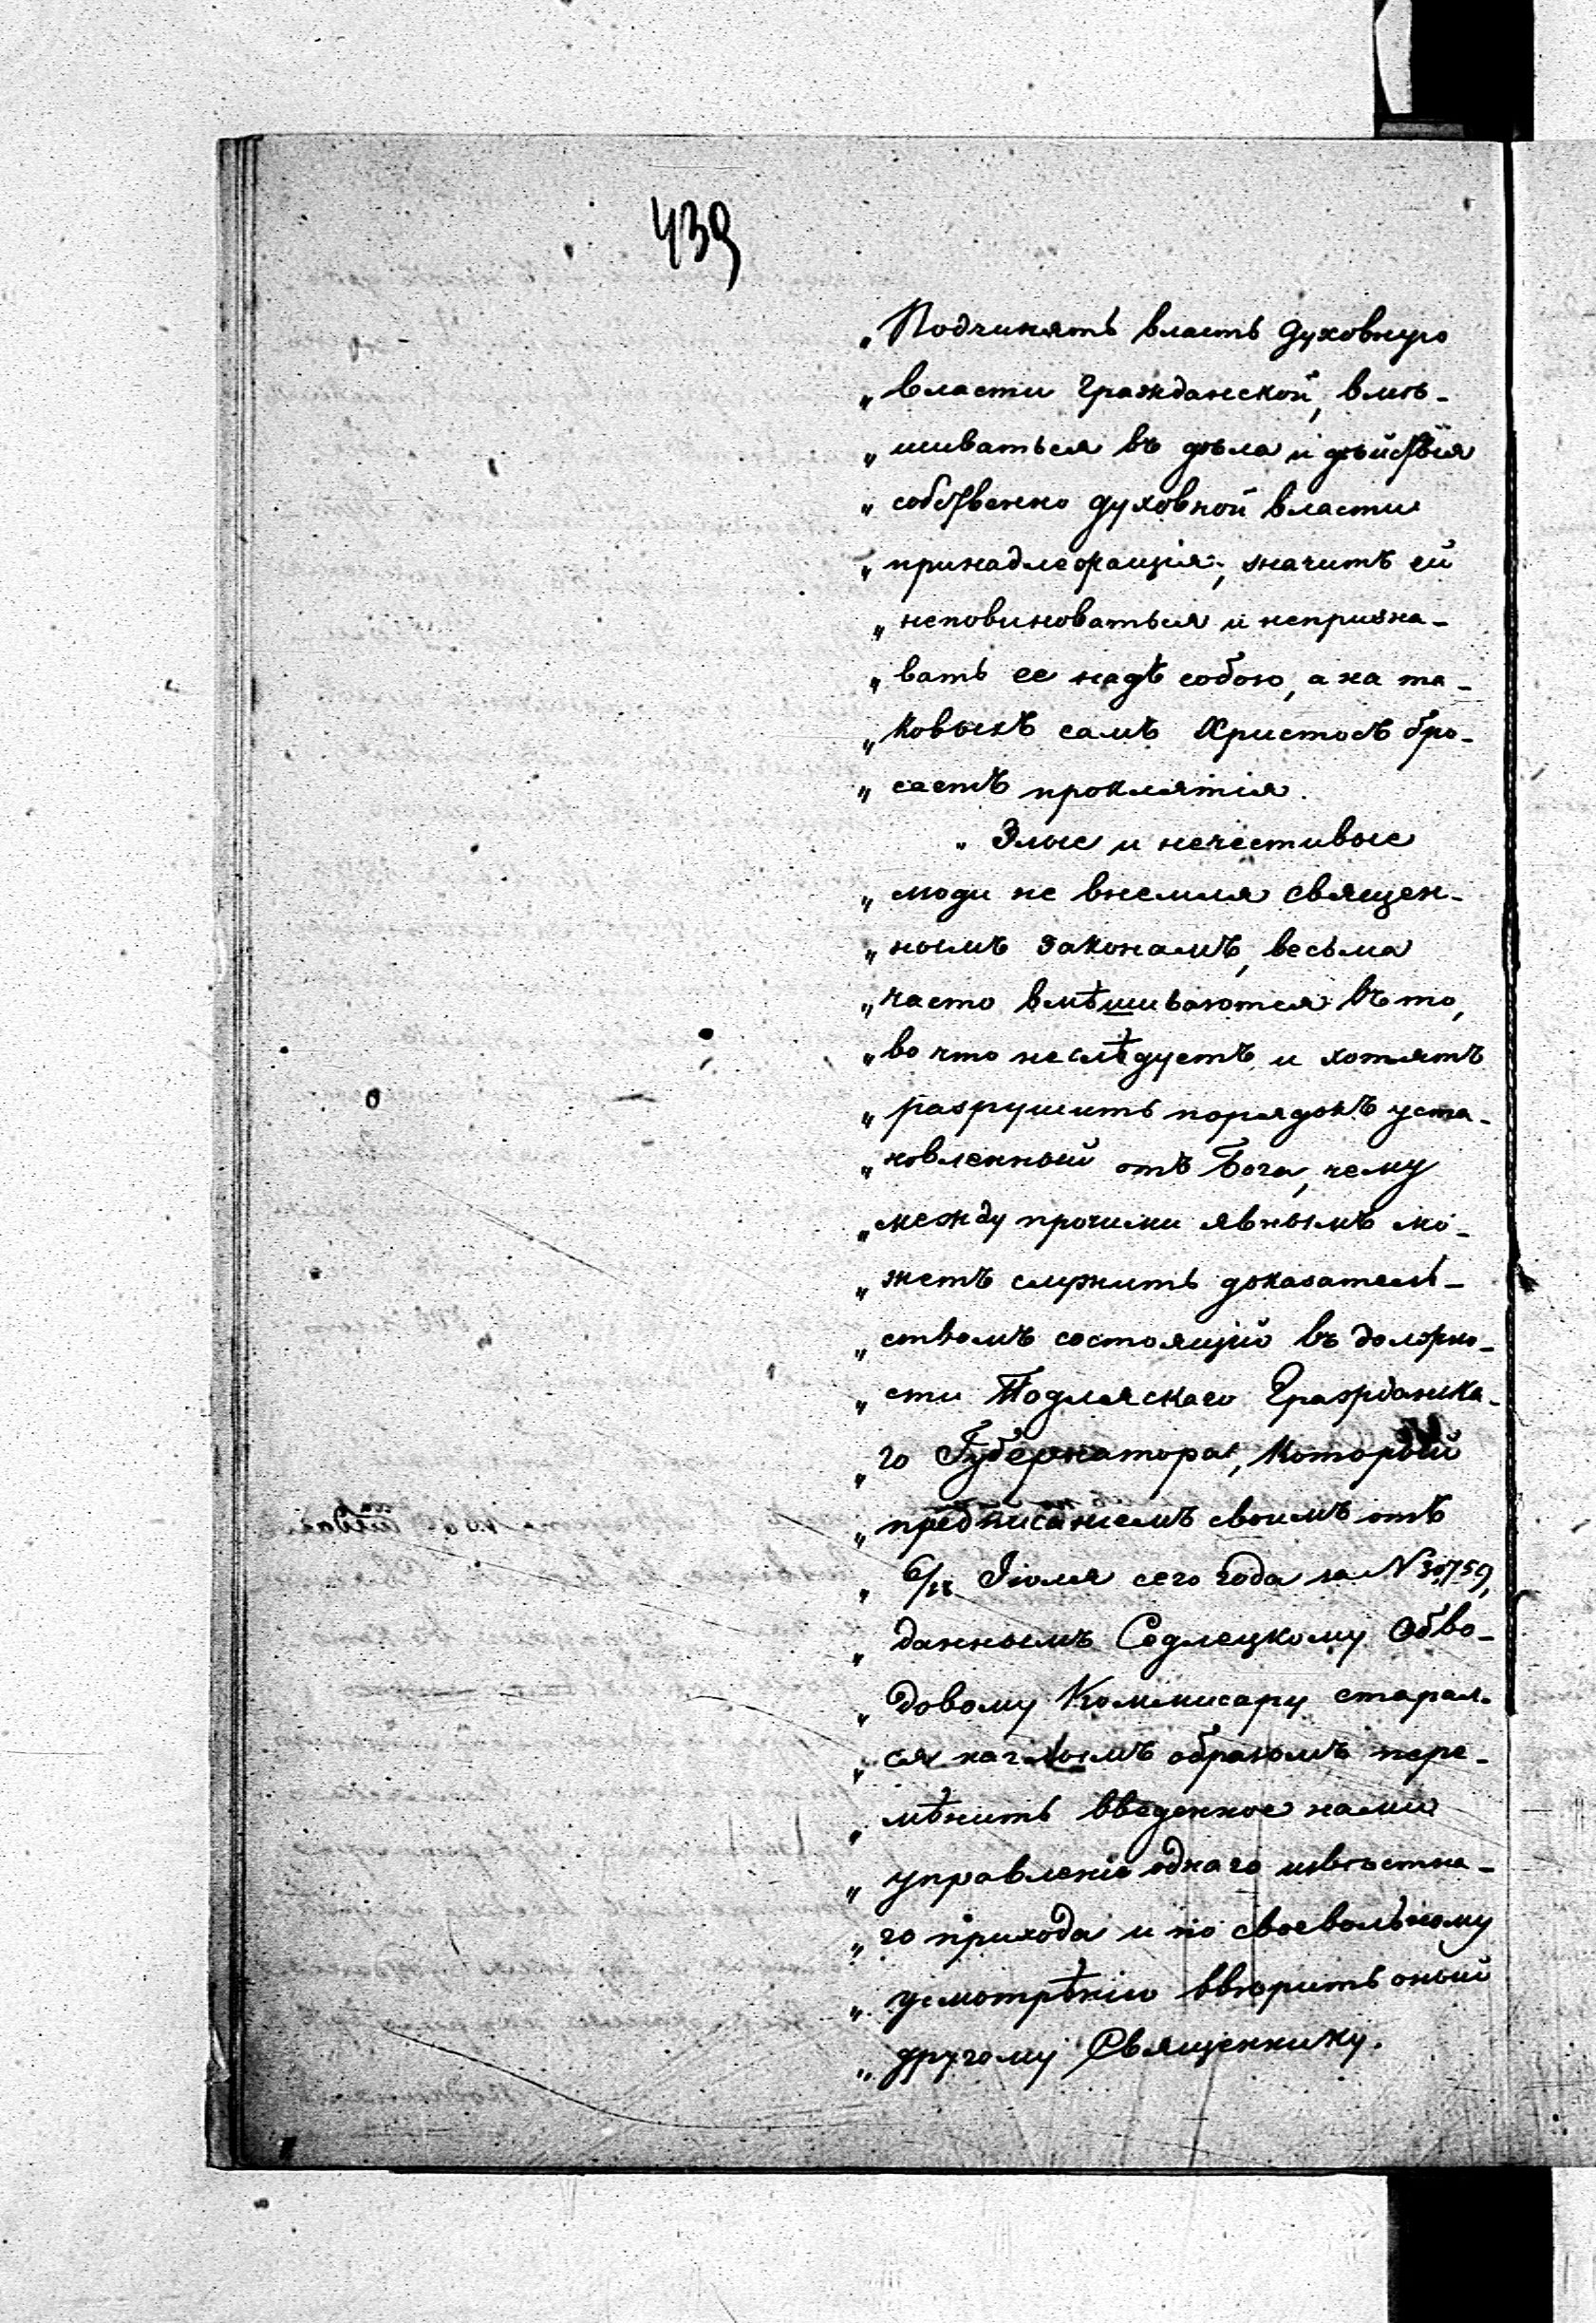 439
„Подчинять власть духовную
„власти гражданской, вмѣ-
„шиваться въ дѣла и дѣйствія
„собственно духовной власти
„принадлежащія, значитъ ей
„неповиноваться и непризна-
„вать ее надъ собою, а на та-
„ковыхъ самъ Христосъ бро-
„саетъ проклятія.
„Злые и нечестивые
„люди не внемля священ-
„нымъ законамъ, весьма
„часто вмѣшиваются въ то,
„во что неслѣдуетъ и хотятъ
„разрушить порядокъ уста-
„новленный отъ Бога, чему
„между прочими явнымъ мо-
„жетъ служить доказатель-
„ствомъ состоящій въ должно-
„сти Подляскаго Гражданска-
„го Губернатора, который
„предписаніемъ своимъ отъ
„6/18 Іюля сего года за N 30759,
„даннымъ Седлецкому Обво-
„довому Коммисару старал-
„ся наглымъ образомъ пере-
„мѣнить введенное нами
„управленіе однаго извѣстна-
„го прихода и по своевольному
„усмотрѣнію ввѣрить оный
„другому Священнику.